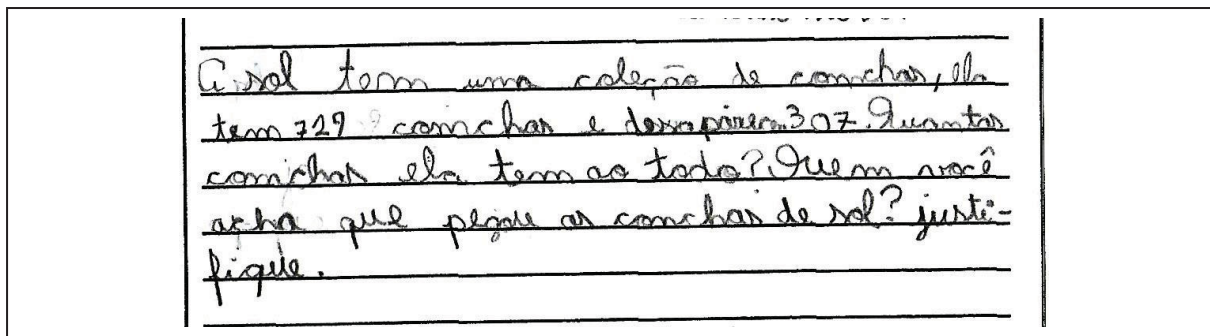 A sol tem uma coleção de conchas, ela
tem 729 conchas e desapárem 307. Quantas
conchas ela tem ao todo? Quem você
acha que pegou as conchas de sol? justi-
fique.